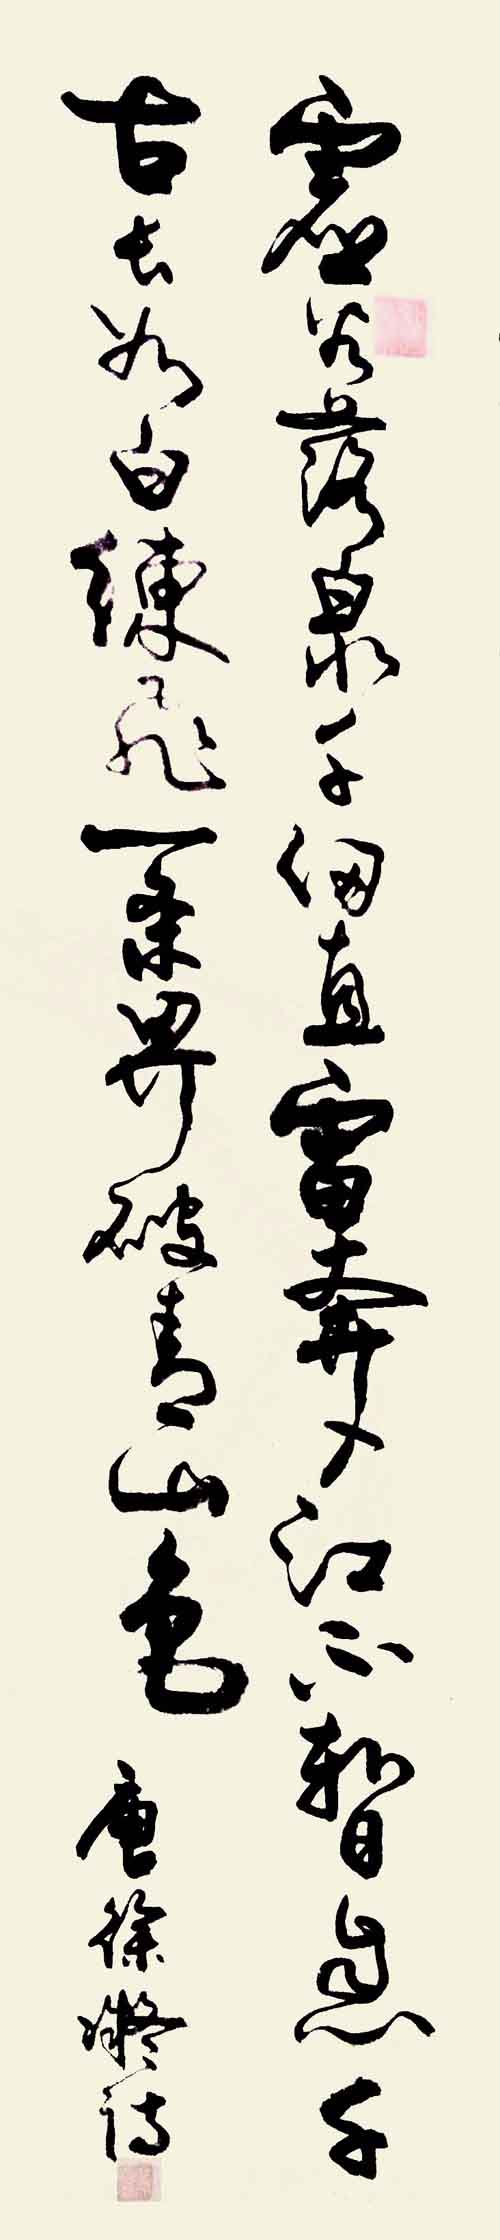 虛谷落泉千仞直雷奔入江不暫息千
古长如白練飛一条界破青山色 唐徐凝詩